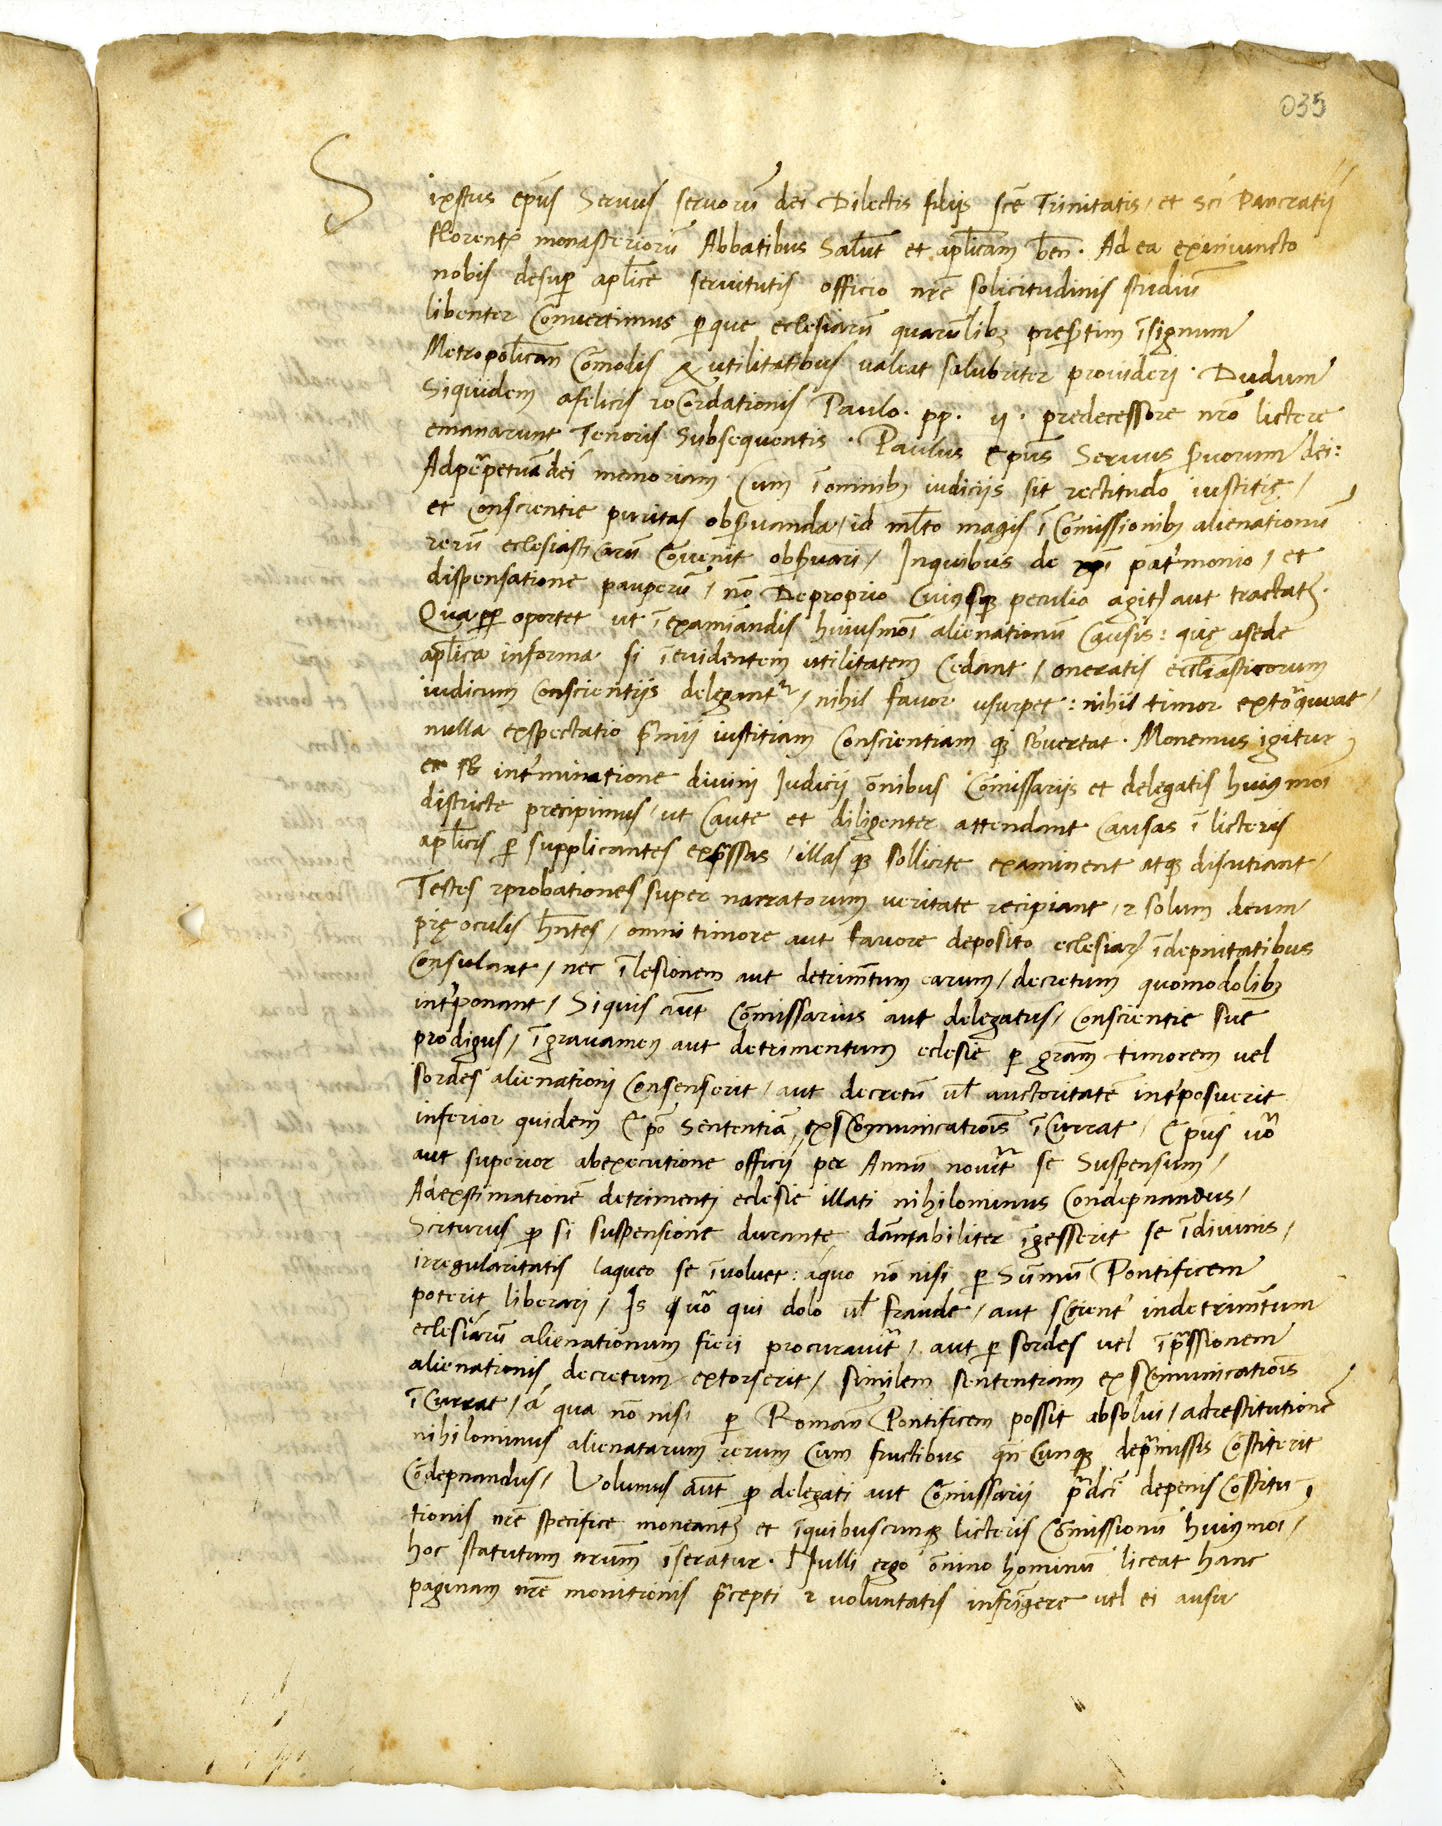 035
Sixstus epūs Servus servorū dei Dilectis filijs scē Trinitatis / et Sci Pancratij
florentȷ monasteriorū Abbatibus Salūt et aplicam bēn. Ad ea exiniuncto
nobis desup aplice servitutis officio nrē solicitudinis studiū
libenter Convertimus p que eclesiarū quarūlibꝫ presertim īsignium
Metropolican Cōmodis & utilitatibus valeat salubriter provideri. Dudum
Siquidem afelicis recordationis Paulo. pp. ij. predecessore nrō lictere
emanarunt Tenoris Subsequentis. Paulus Epūs Servus servorum dei:
Adppetuā dei memoriam Cum īomnibꝫ iudicijs sit rectitudo iustitię /
et Conscientie puritas observanda / id mlto magis ī Cōmissionibꝫ alienationū
rerū eclesiasticarū Convenit observari / Inquibus de xpi patrimonio / et
dispensatione pauperū / nō Deproprio Cuiusqꝫ peculio agit aut tractatꝫ.
Quapp oportet ut īexamiandis huiusmōi alienationū Causis: quę asede
aplica informa si īevidentem utilitatem Cedant / oneratis eclīasticorum
iudicum Conscientijs delegantr / nihil favor usurpet: nihil timor extorqueat /
nulla exspectatio pmij iustitiam Conscientiam qꝫ subvertat. Monemus igitur
et sb interminatione divini Iudicij ōnibus Cōmissarijs et delegatis huiusmōi
districte precipimus / ut Caute et diligenter attendant Causas ī licteris
aplicis p supplicantes expssas / illas qꝫ sollicite examinent atqꝫ discutiant /
Testes et probationes super narratorum veritate recipiant / et solum deum
pię oculis hntes / omni timore aut favore deposito eclesiarꝫ īdepnitatibus
Consulant / nec īlesionem aut detrimtum earum / decretum quomodolibꝫ
intponant / Siquis aūt Cōmissarius aut delegatus / Conscientie sue
prodigus / īgravamen aut detrimentum eclesie p gram timorem vel
sordes alienationi Consenserit / aut decretū vl auctoritatē intposuerit
inferior quidem Epō Sententiā, exsComunicatiois īCurrat / Epūs vō
aut superior abexecutione officij per Annū noverit se Suspensum /
Adexstimationē detrimenti eclesie illati nihilominus Condepnandus /
Sciturus p si suspensione durante dantabiliter īgesserit se īdivinis /
irregularitatis laqueo se īvolvet: aquo nō nisi p Sūmū Pontificem
poterit liberari / Is vō qui dolo vl fraude / aut scient indetrimtum
eclesiarū alienationum fieri procuravit / aut p sordes vel īpssionem
alienationis decretum extorserit / similem sententiam exsComunicatiois
īCurrat / a qua nō nisi p Romanū Pontificem possit absolvi / adrestitutionē
nihilominus alienatarum rerum Cum fructibus qn Cunqꝫ depmissis Cōstiterit
Cōdepnandus / Volumus aūt p delegati aut Cōmissarij pdci depenis Cōstitu
tionis nrē specifice moneantꝫ et īquibuscunqꝫ licteris Cōmissionū huiusmōi /
hoc statutum nrum īseratur. Nulli ergo ōnino hominū liceat hanc
paginam nrē monitionis pcepti et voluntatis infrīgere vel ei ausu